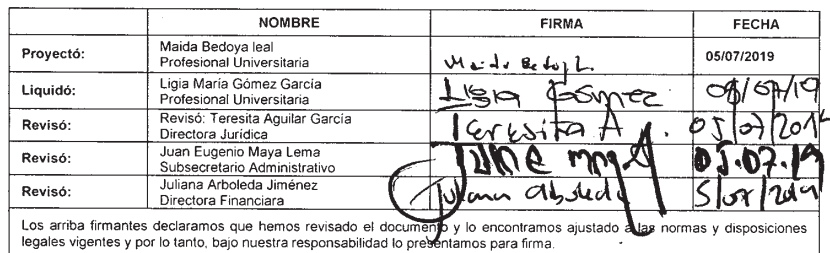 NOMBRE FIRMA FECHA
Proyectó: Maida Bedoya leal
Profesional Universitaria Maida Bedoya L. 05/07/2019
Liquidó: Ligia María Gómez García
Profesional Universitaria Ligia Gómez 05/07/19
Revisó: Revisó: Teresita Aguilar García
Directora Jurídica Teresita A. 05/07/2019
Revisó: Juan Eugenio Maya Lema
Subsecretario Administrativo 05.07.19
Revisó: Juliana Arboleda Jiménez
Directora Financiara Juliana Arboleda 5/07/2019
Los arriba firmantes declaramos que hemos revisado el documento y lo encontramos ajustado a las normas y disposiciones
legales vigentes y por lo tanto, bajo nuestra responsabilidad lo presentamos para firma.